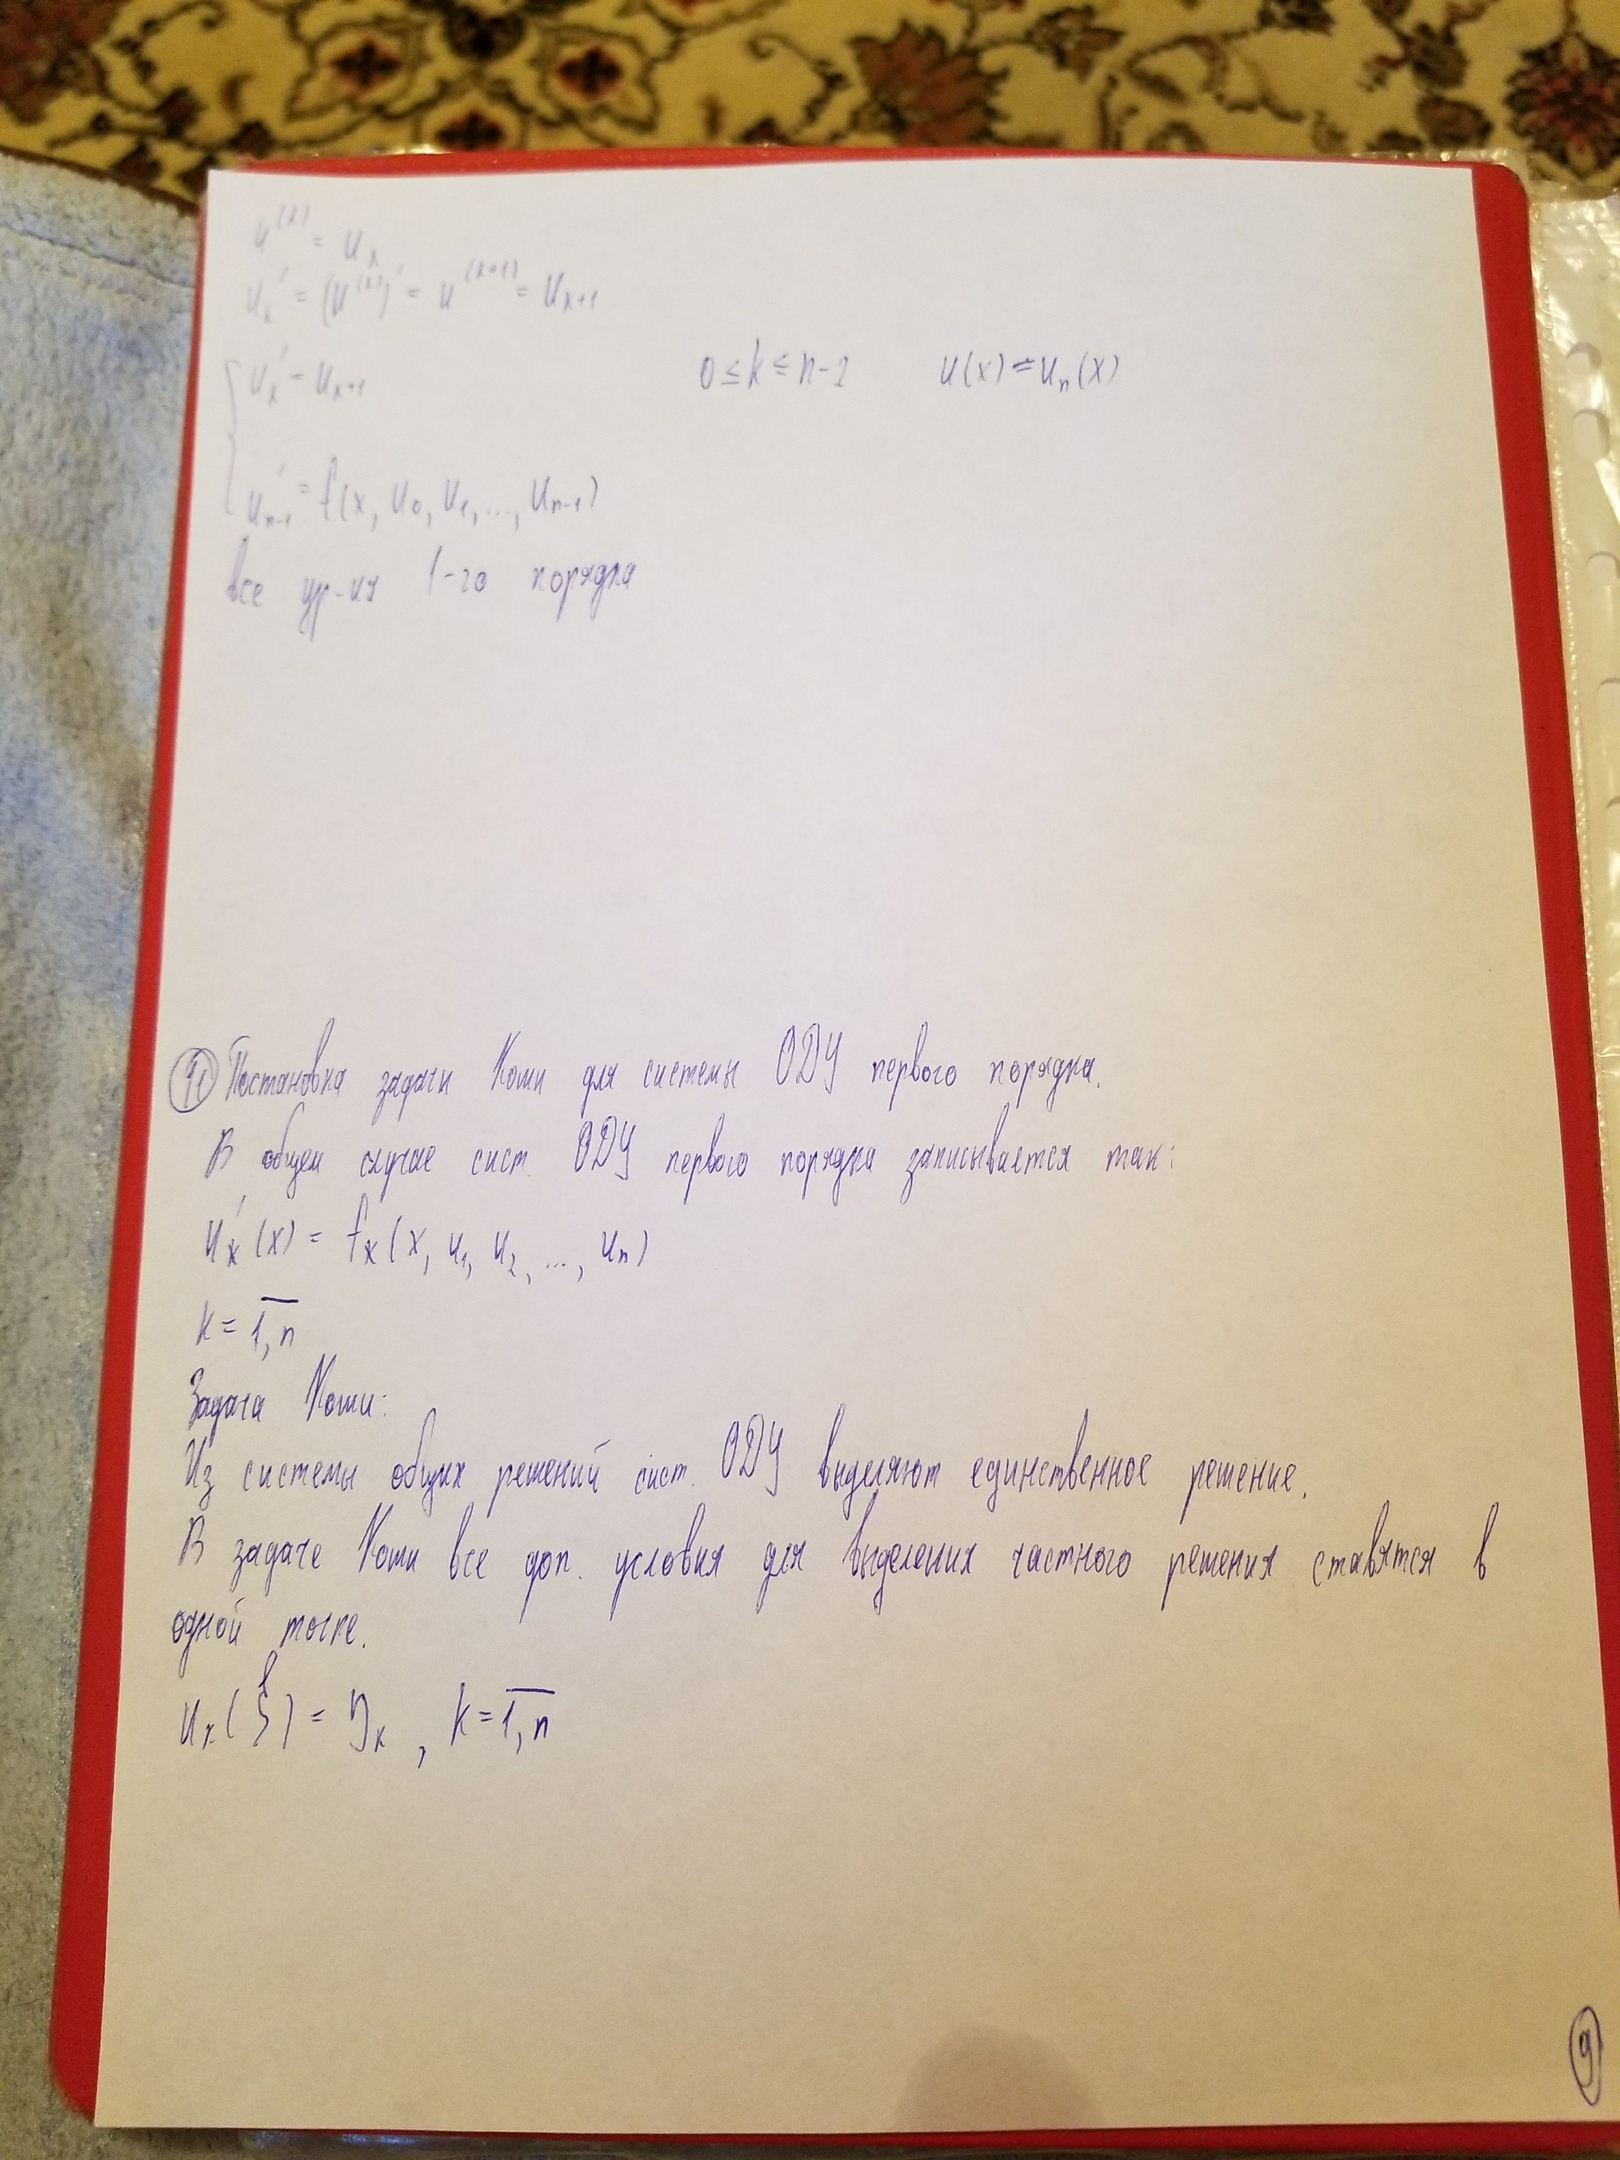 u^(k) = u_k
u_k' = (u^(k))' = u^(k+1) = u_k+1
u_k' = u_k+1 0 ≤ k ≤ n-2 u(x) = u_n(x)
u_n-1' = f(x, u_0, u_1, ..., u_n-1)
все ур-ия 1-го порядка
Постановка задачи Коши для системы ОДУ первого порядка.
В общем случае сист. ОДУ первого порядка записывается так:
u_k'(x) = f_k(x, u_1, u_2, ..., u_n)
k = 1,n
Задача Коши:
Из системы общих решений сист. ОДУ выделяют единственное решение.
В задаче Коши все доп. условия для выделения частного решения ставятся в
одной точке.
u_k(ξ) = η_k, k = 1,n
9